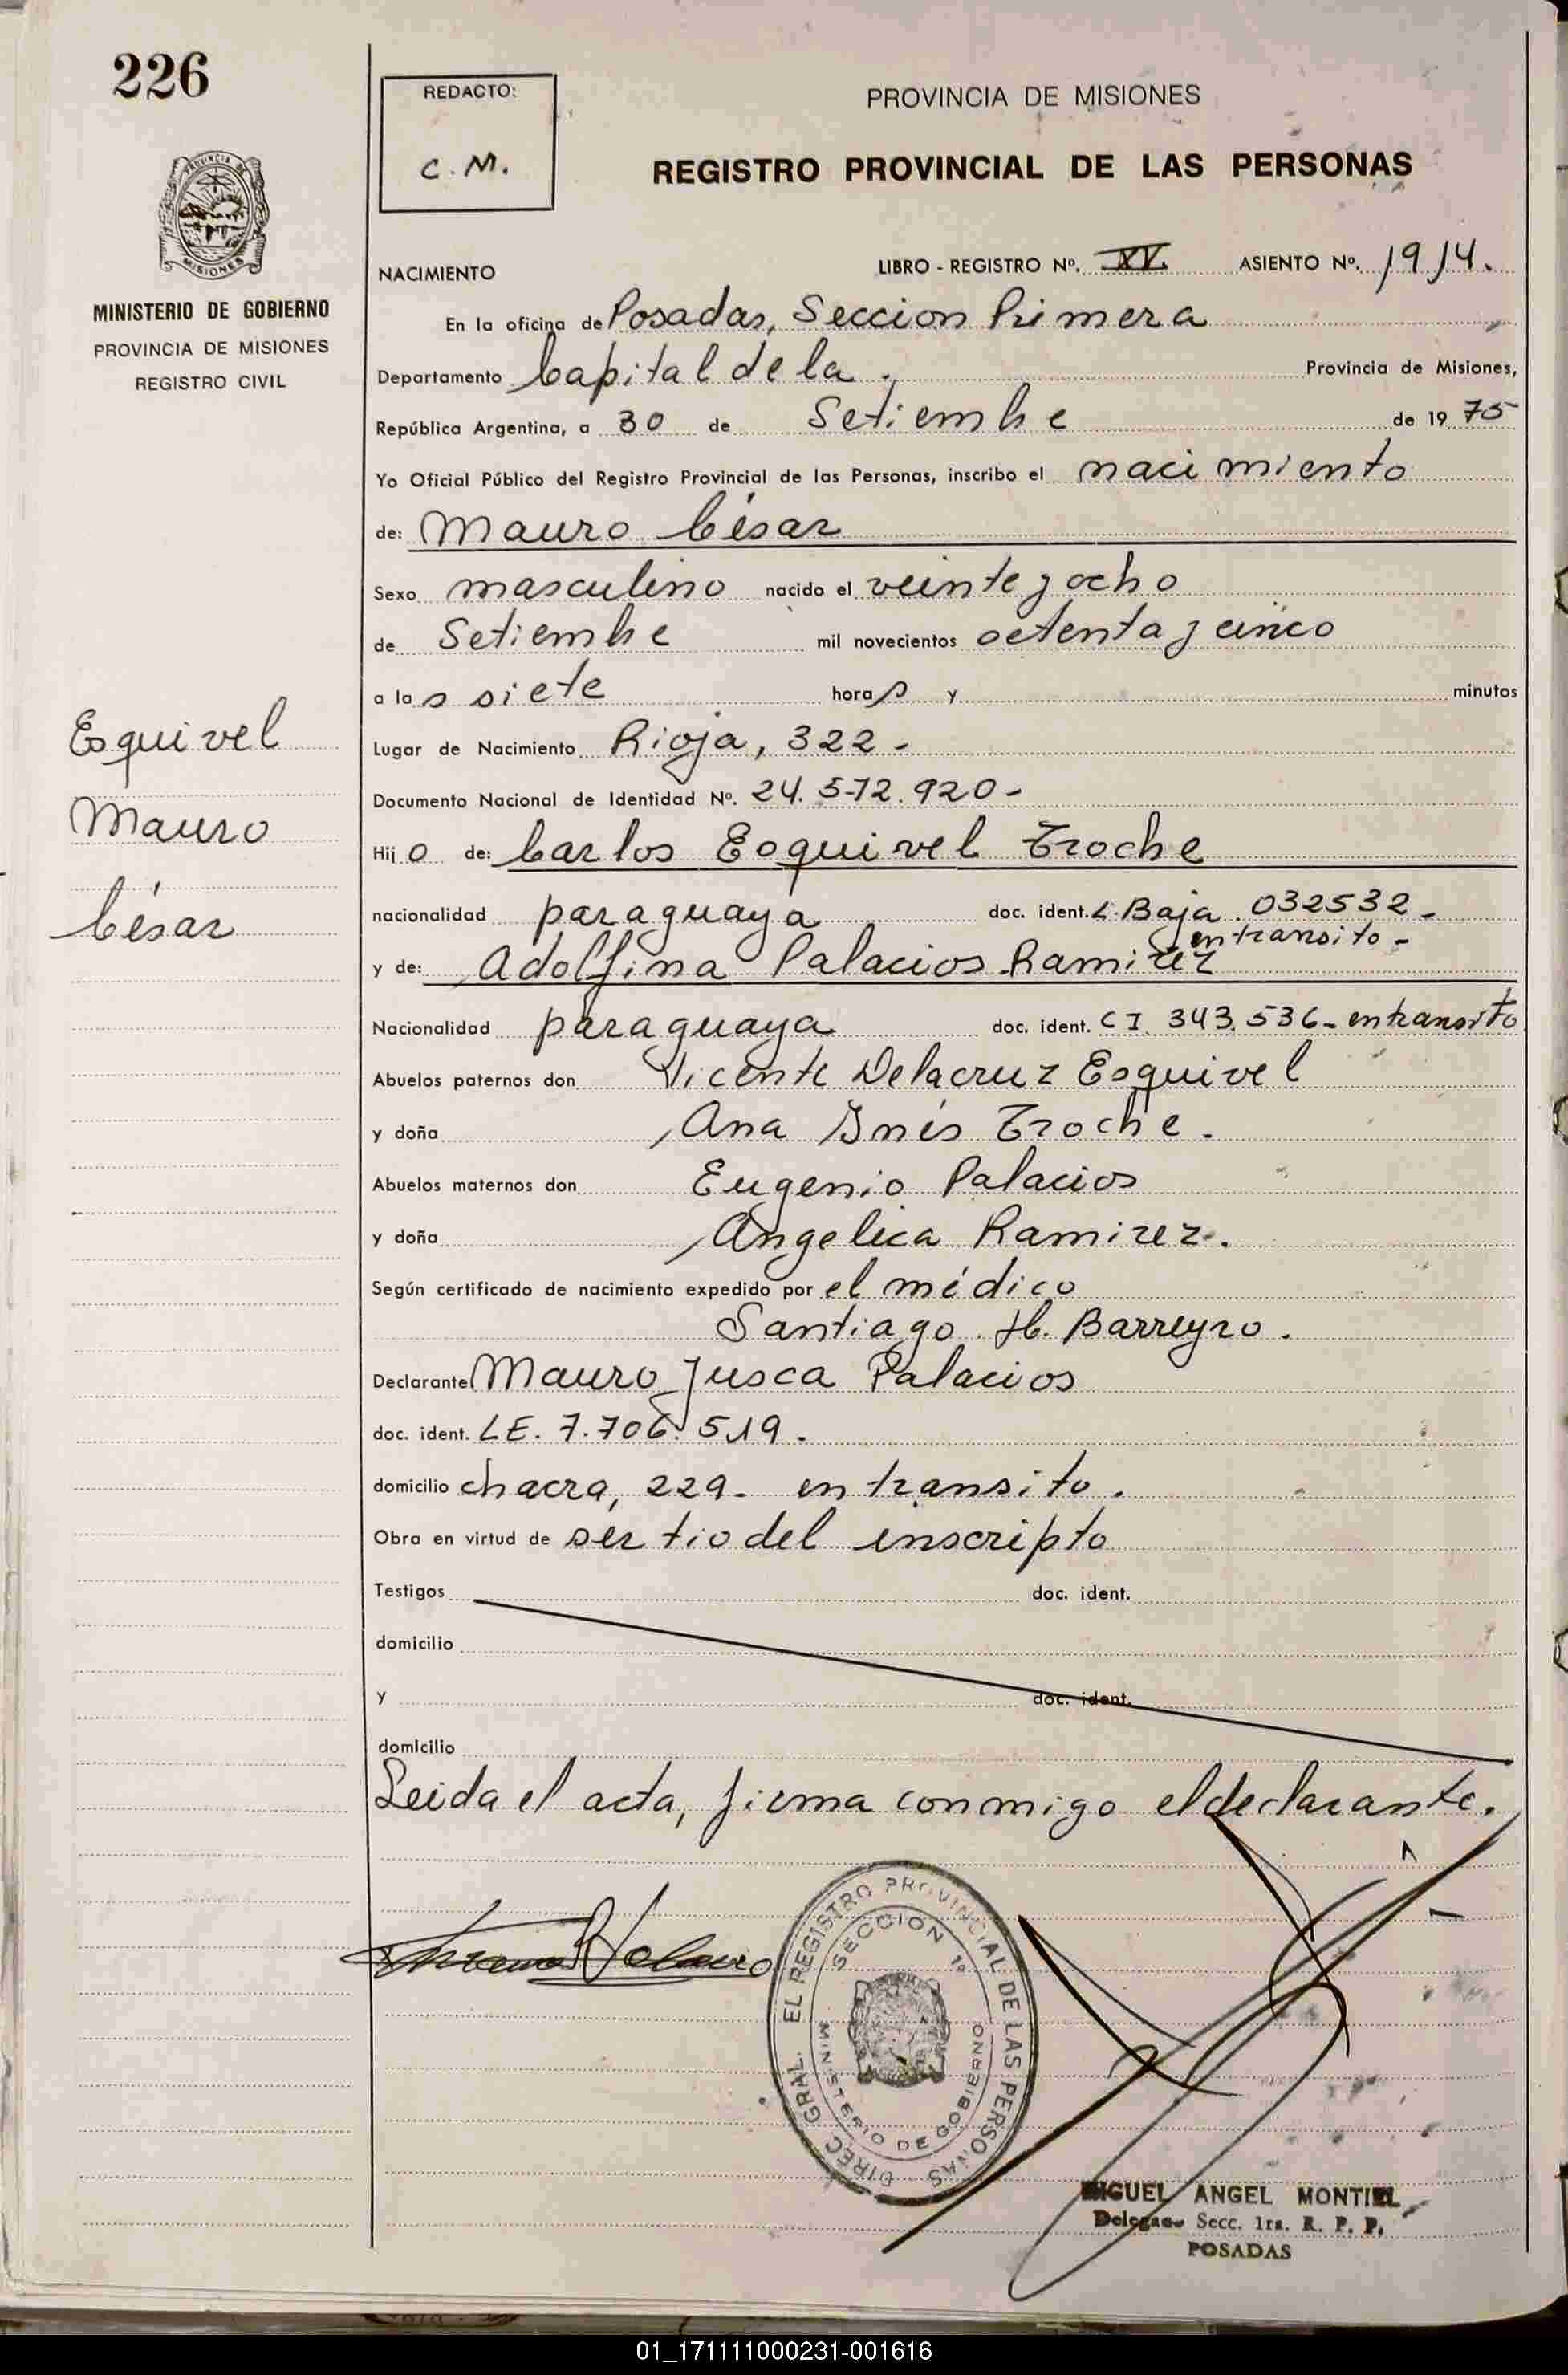 226
PROVINCIA DE MISIONES
MINISTERIO DE GOBIERNO
PROVINCIA DE MISIONES
REGISTRO CIVIL
Esquivel
Mauro
César
REDACTO:
C. M.
PROVINCIA DE MISIONES
REGISTRO PROVINCIAL DE LAS PERSONAS
NACIMIENTO LIBRO - REGISTRO Nº. XV ASIENTO Nº. 1914.
En la oficina de Posadas, Seccion Primera
Departamento Capital de la. Provincia de Misiones,
República Argentina, a 30 de Setiembre de 1975
Yo Oficial Público del Registro Provincial de las Personas, inscribo el nacimiento
de: Mauro César
Sexo masculino nacido el veinte y ocho
de Setiembre mil novecientos setenta y cinco
a las siete horas y minutos
Lugar de Nacimiento Rioja, 322-
Documento Nacional de Identidad Nº. 24.572.920-
Hijo de: Carlos Esquivel Troche
nacionalidad paraguaya doc. ident. L. Baja. 032532-
en transito-
y de: Adolfina Palacios Ramirez
Nacionalidad paraguaya doc. ident. CI. 343.536- en transito
Abuelos paternos don Vicente Delacruz Esquivel
y doña Ana Inés Troche.
Abuelos maternos don Eugenio Palacios
y doña Angelica Ramirez.
Según certificado de nacimiento expedido por el médico
Santiago. H. Barreyro.
Declarante Mauro Jusca Palacios
doc. ident. LE. 7.706.519.
domicilio chacra, 229- en transito.
Obra en virtud de ser tio del inscripto
Testigos doc. ident.
domicilio
y doc. ident.
domicilio
Leida el acta, firma conmigo el declarante.
DIREC. GRAL. EL REGISTRO PROVINCIAL DE LAS PERSONAS
SECCION 1ª
MINISTERIO DE GOBIERNO
MIGUEL ANGEL MONTIEL
Secc. 1ra. R. P. P.
POSADAS
01_171111000231-001616